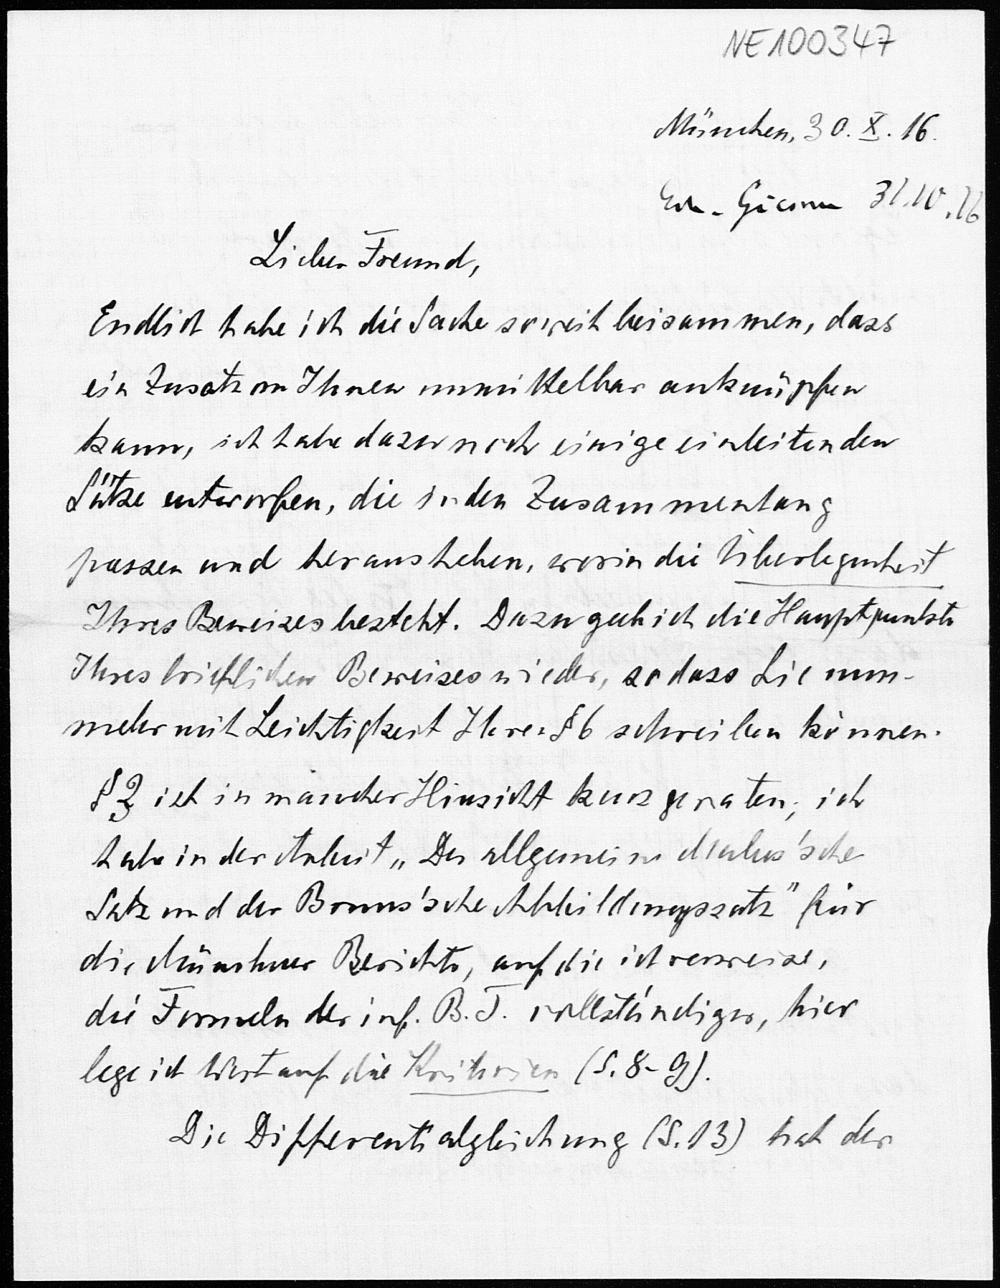 NE100347
München, 30. X. 16.
31.10.16
Lieber Freund,
Endlich habe ich die Sache soweit beisammen, dass
ein Zusatz von Ihnen unmittelbar anknüpfen
kann, ich habe dazu noch einige einleitenden
Sätze entworfen, die in den Zusammenhang
passen und herausheben, worin die Überlegenheit
Ihres Beweises besteht. Dazu geb ich die Hauptpunkte
Ihres brieflichen Beweises wieder, sodass Sie nun-
mehr mit Leichtigkeit Ihren §6 schreiben können.
§ 3 ist in mancher Hinsicht kurz geraten; ich
habe in der Arbeit „Der allgemeine Malus'sche
Satz und der Bruns'sche Abbildungssatz" für
die Münchner Berichte, auf die ich verweise,
die Formeln der inf. B.T. vollständiger, hier
lege ich Wert auf die Kriterien (S. 8-9).
Die Differentialgleichung (S. 13) hat der